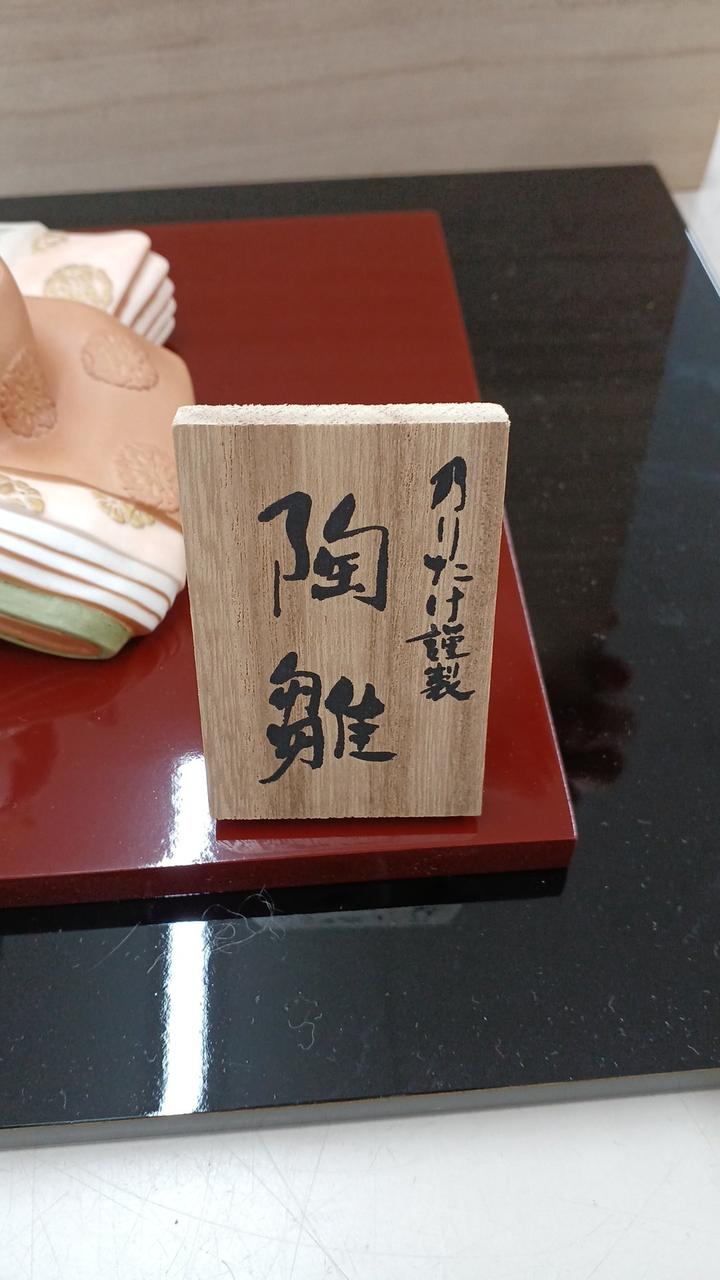 乃りたけ謹製
陶雛